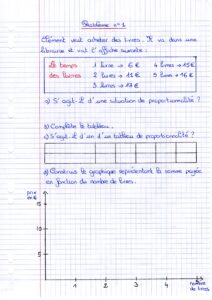 Problème n°1
Clément veut acheter des livres. Il va dans une
librairie et voit l'affiche suivante :
Le temps des livres
1 livre → 6 €
2 livres → 11 €
3 livres →
4 livres → 15 €
5 livres → 16 €
a) S'agit-il d'une situation de proportionnalité ?
b) Complète le tableau.
S'agit-il d'un tableau de proportionnalité ?
c) Construis le graphique représentant la somme payée
en fonction du nombre de livres.
prix
en €
15
10
5
1 2 3 4 5
nombre
de livres